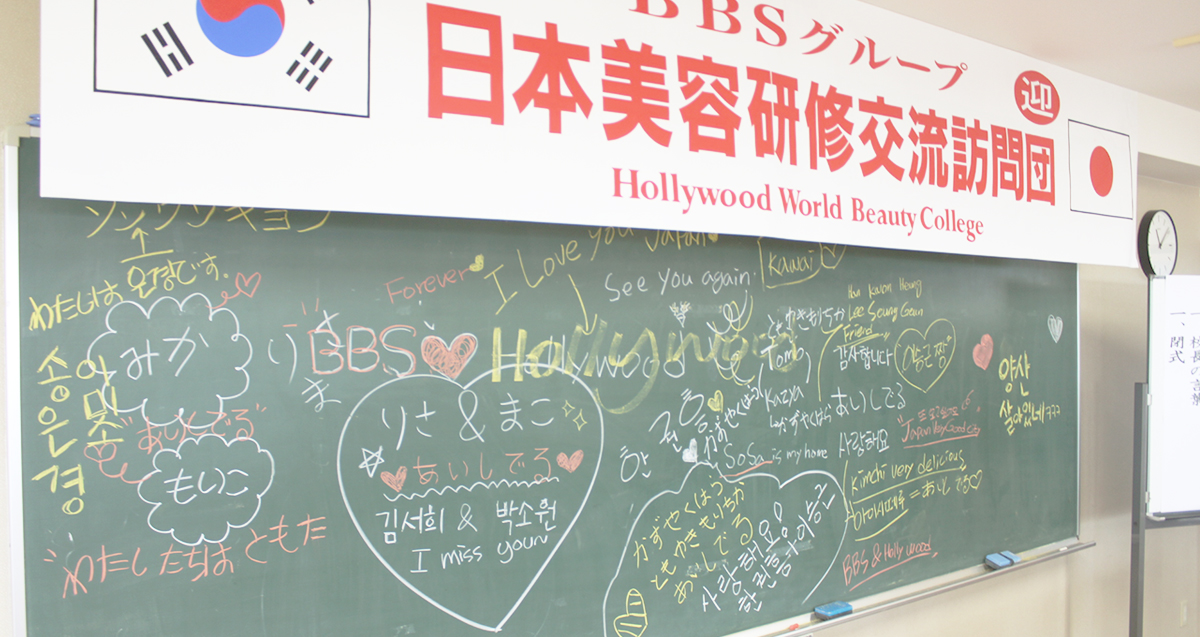 BBSグループ
迎
日本美容研修交流訪問団
Hollywood World Beauty College
わたしは 은경です。
みか
あいしてる
もいこ
わたしたちは ともだ
Forever
I Love You Japan
See you again
Kawai
BBS Hollywood
りさ & まこ
あいしでる
김서희 & 박소원
I miss youn
Tomo
Kazya
かずやくはら
SoSa is my home
Han Kwon Heung
Lee Seung Geun
Friend
감사합니다
あいしでる
사랑해요
Japan Very Good
Kimchi very delicious
아이시떼루 = あいしでる
BBS & Hollywood
양산
살아있네 ㅋㅋㅋ
かずやくはら
ともやきもりちか
あいしでる
사랑해요!
한권흥 이승근
閉式